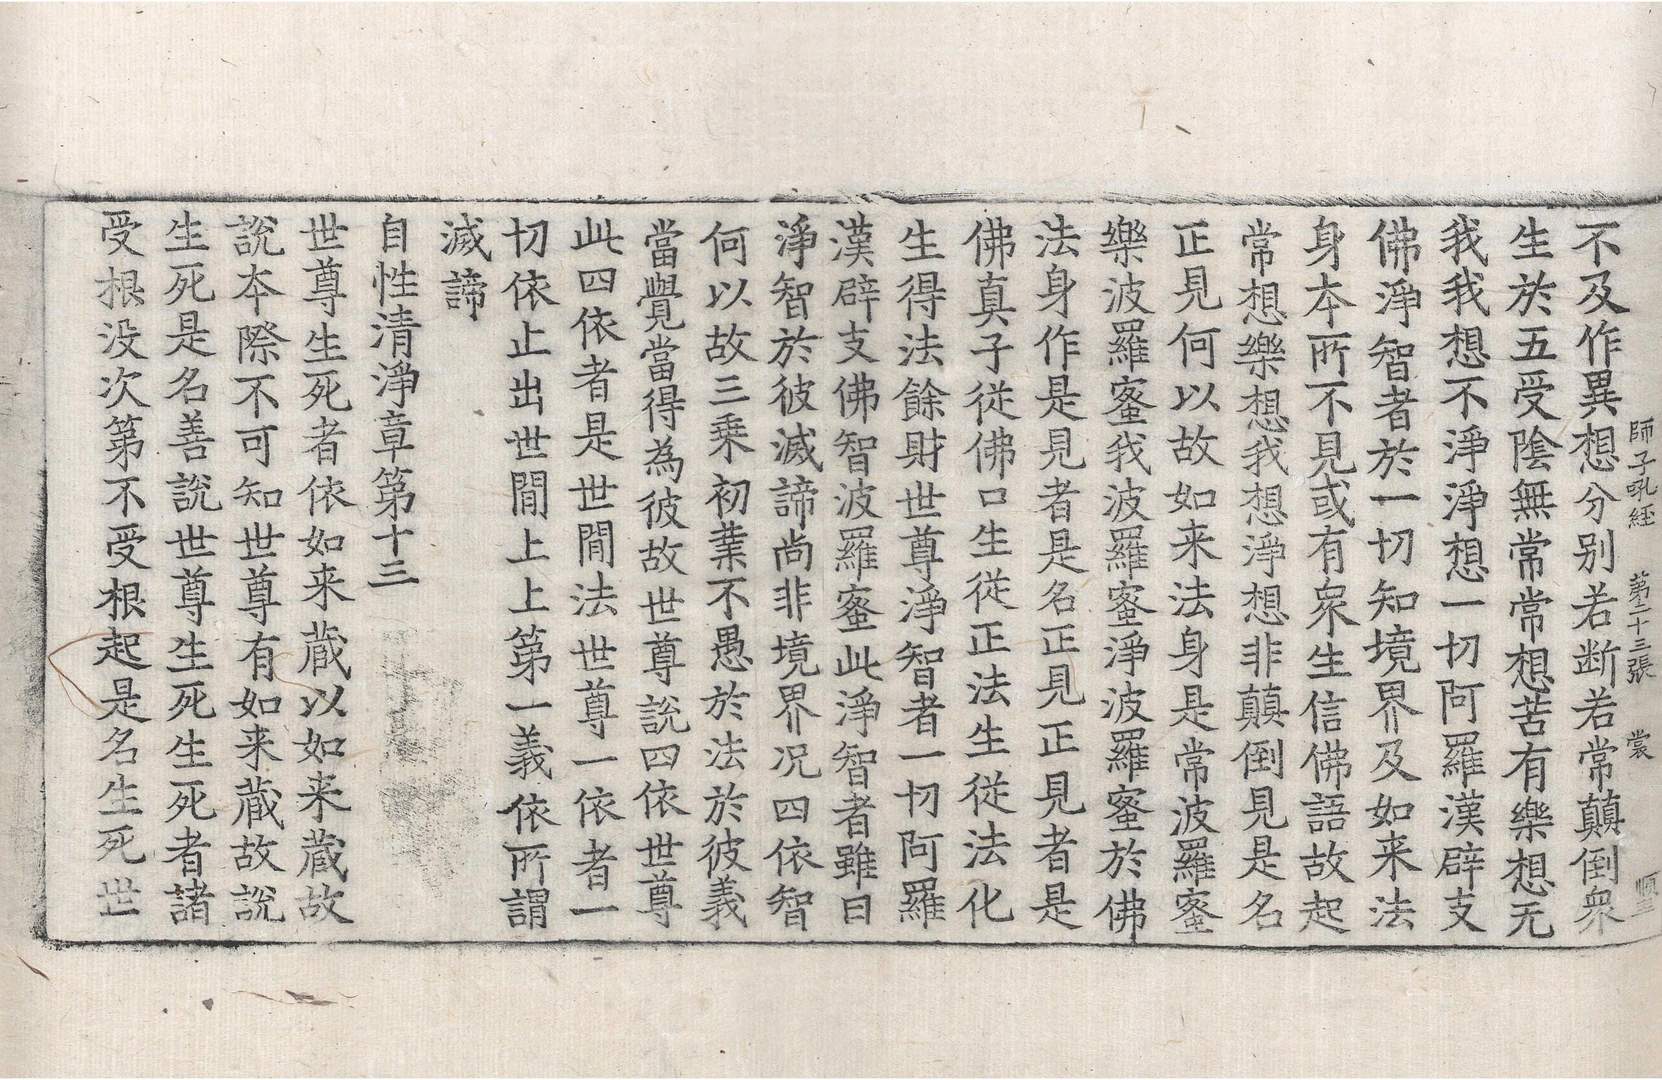 師子吼經　第二十三張　裳　順三
不及作異想分别若断若常顛倒衆
生於五受陰無常常想苦有樂想无
我我想不淨淨想一切阿羅漢辟支
佛淨智者於一切知境界及如来法
身本所不見或有衆生信佛語故起
常想樂想我想淨想非顛倒見是名
正見何以故如来法身是常波羅蜜
樂波羅蜜我波羅蜜淨波羅蜜於佛
法身作是見者是名正見正見者是
佛真子従佛口生従正法生従法化
生得法餘財世尊淨智者一切阿羅
漢辟支佛智波羅蜜此淨智者雖曰
淨智於彼滅諦尚非境界况四依智
何以故三乗初業不愚於法於彼義
當覺當得為彼故世尊説四依世尊
此四依者是世間法世尊一依者一
切依止出世間上上第一義依所謂
滅諦
自性清淨章第十三
世尊生死者依如来蔵以如来蔵故
説本際不可知世尊有如来蔵故説
生死是名善説世尊生死生死者諸
受根没次第不受根起是名生死世